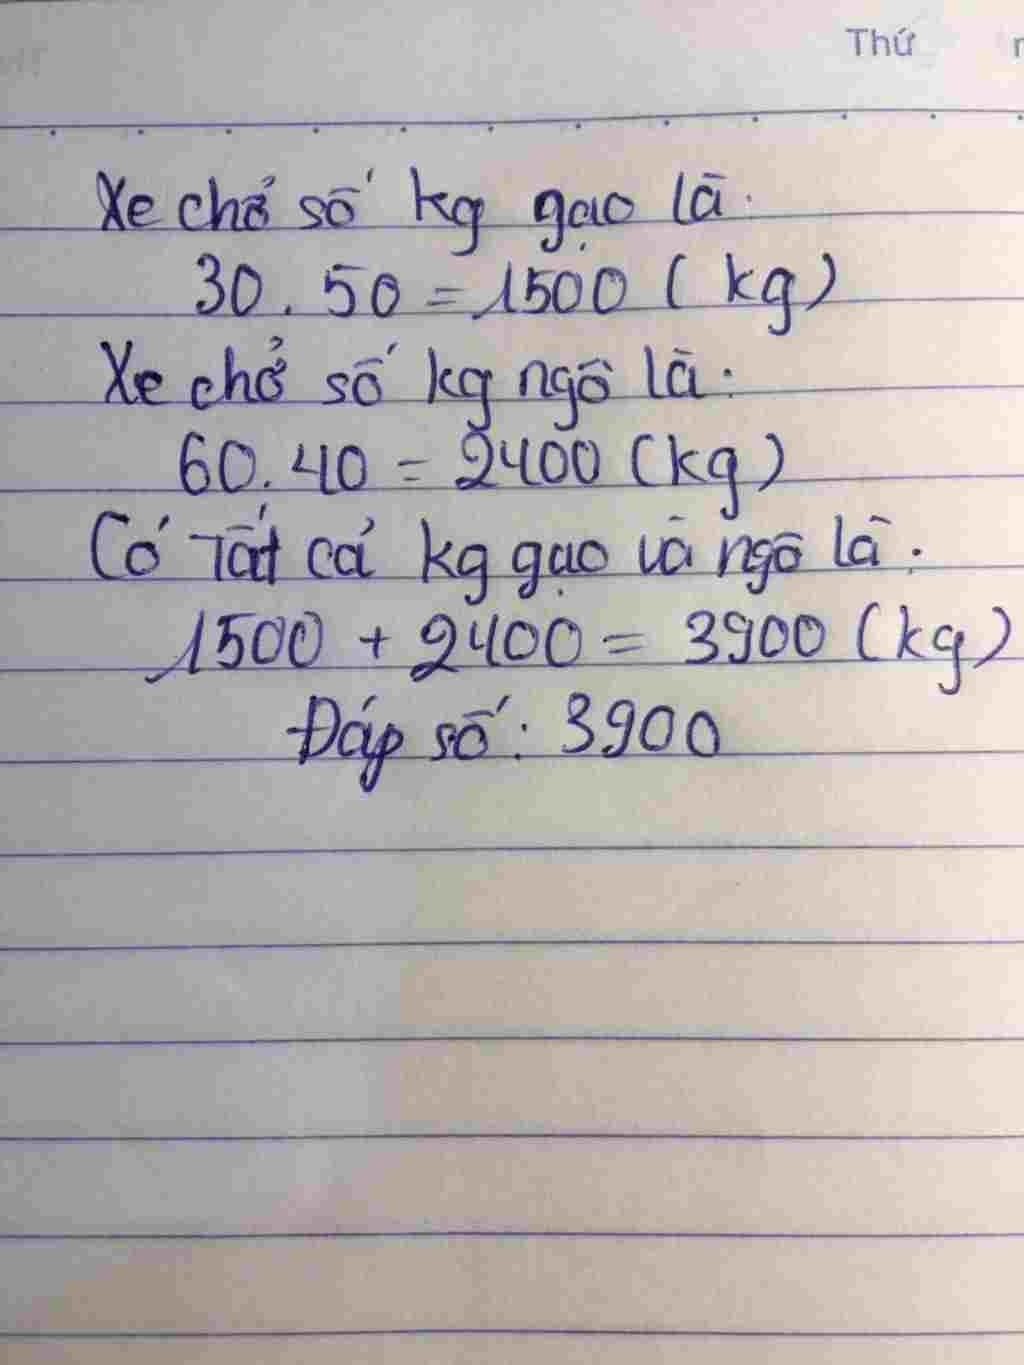 Thứ
Xe chở số kg gạo là:
30.50 = 1500 (kg)
Xe chở số kg ngô là:
60.40 = 2400 (kg)
Có tất cả kg gạo và ngô là:
1500 + 2400 = 3900 (kg)
Đáp số: 3900